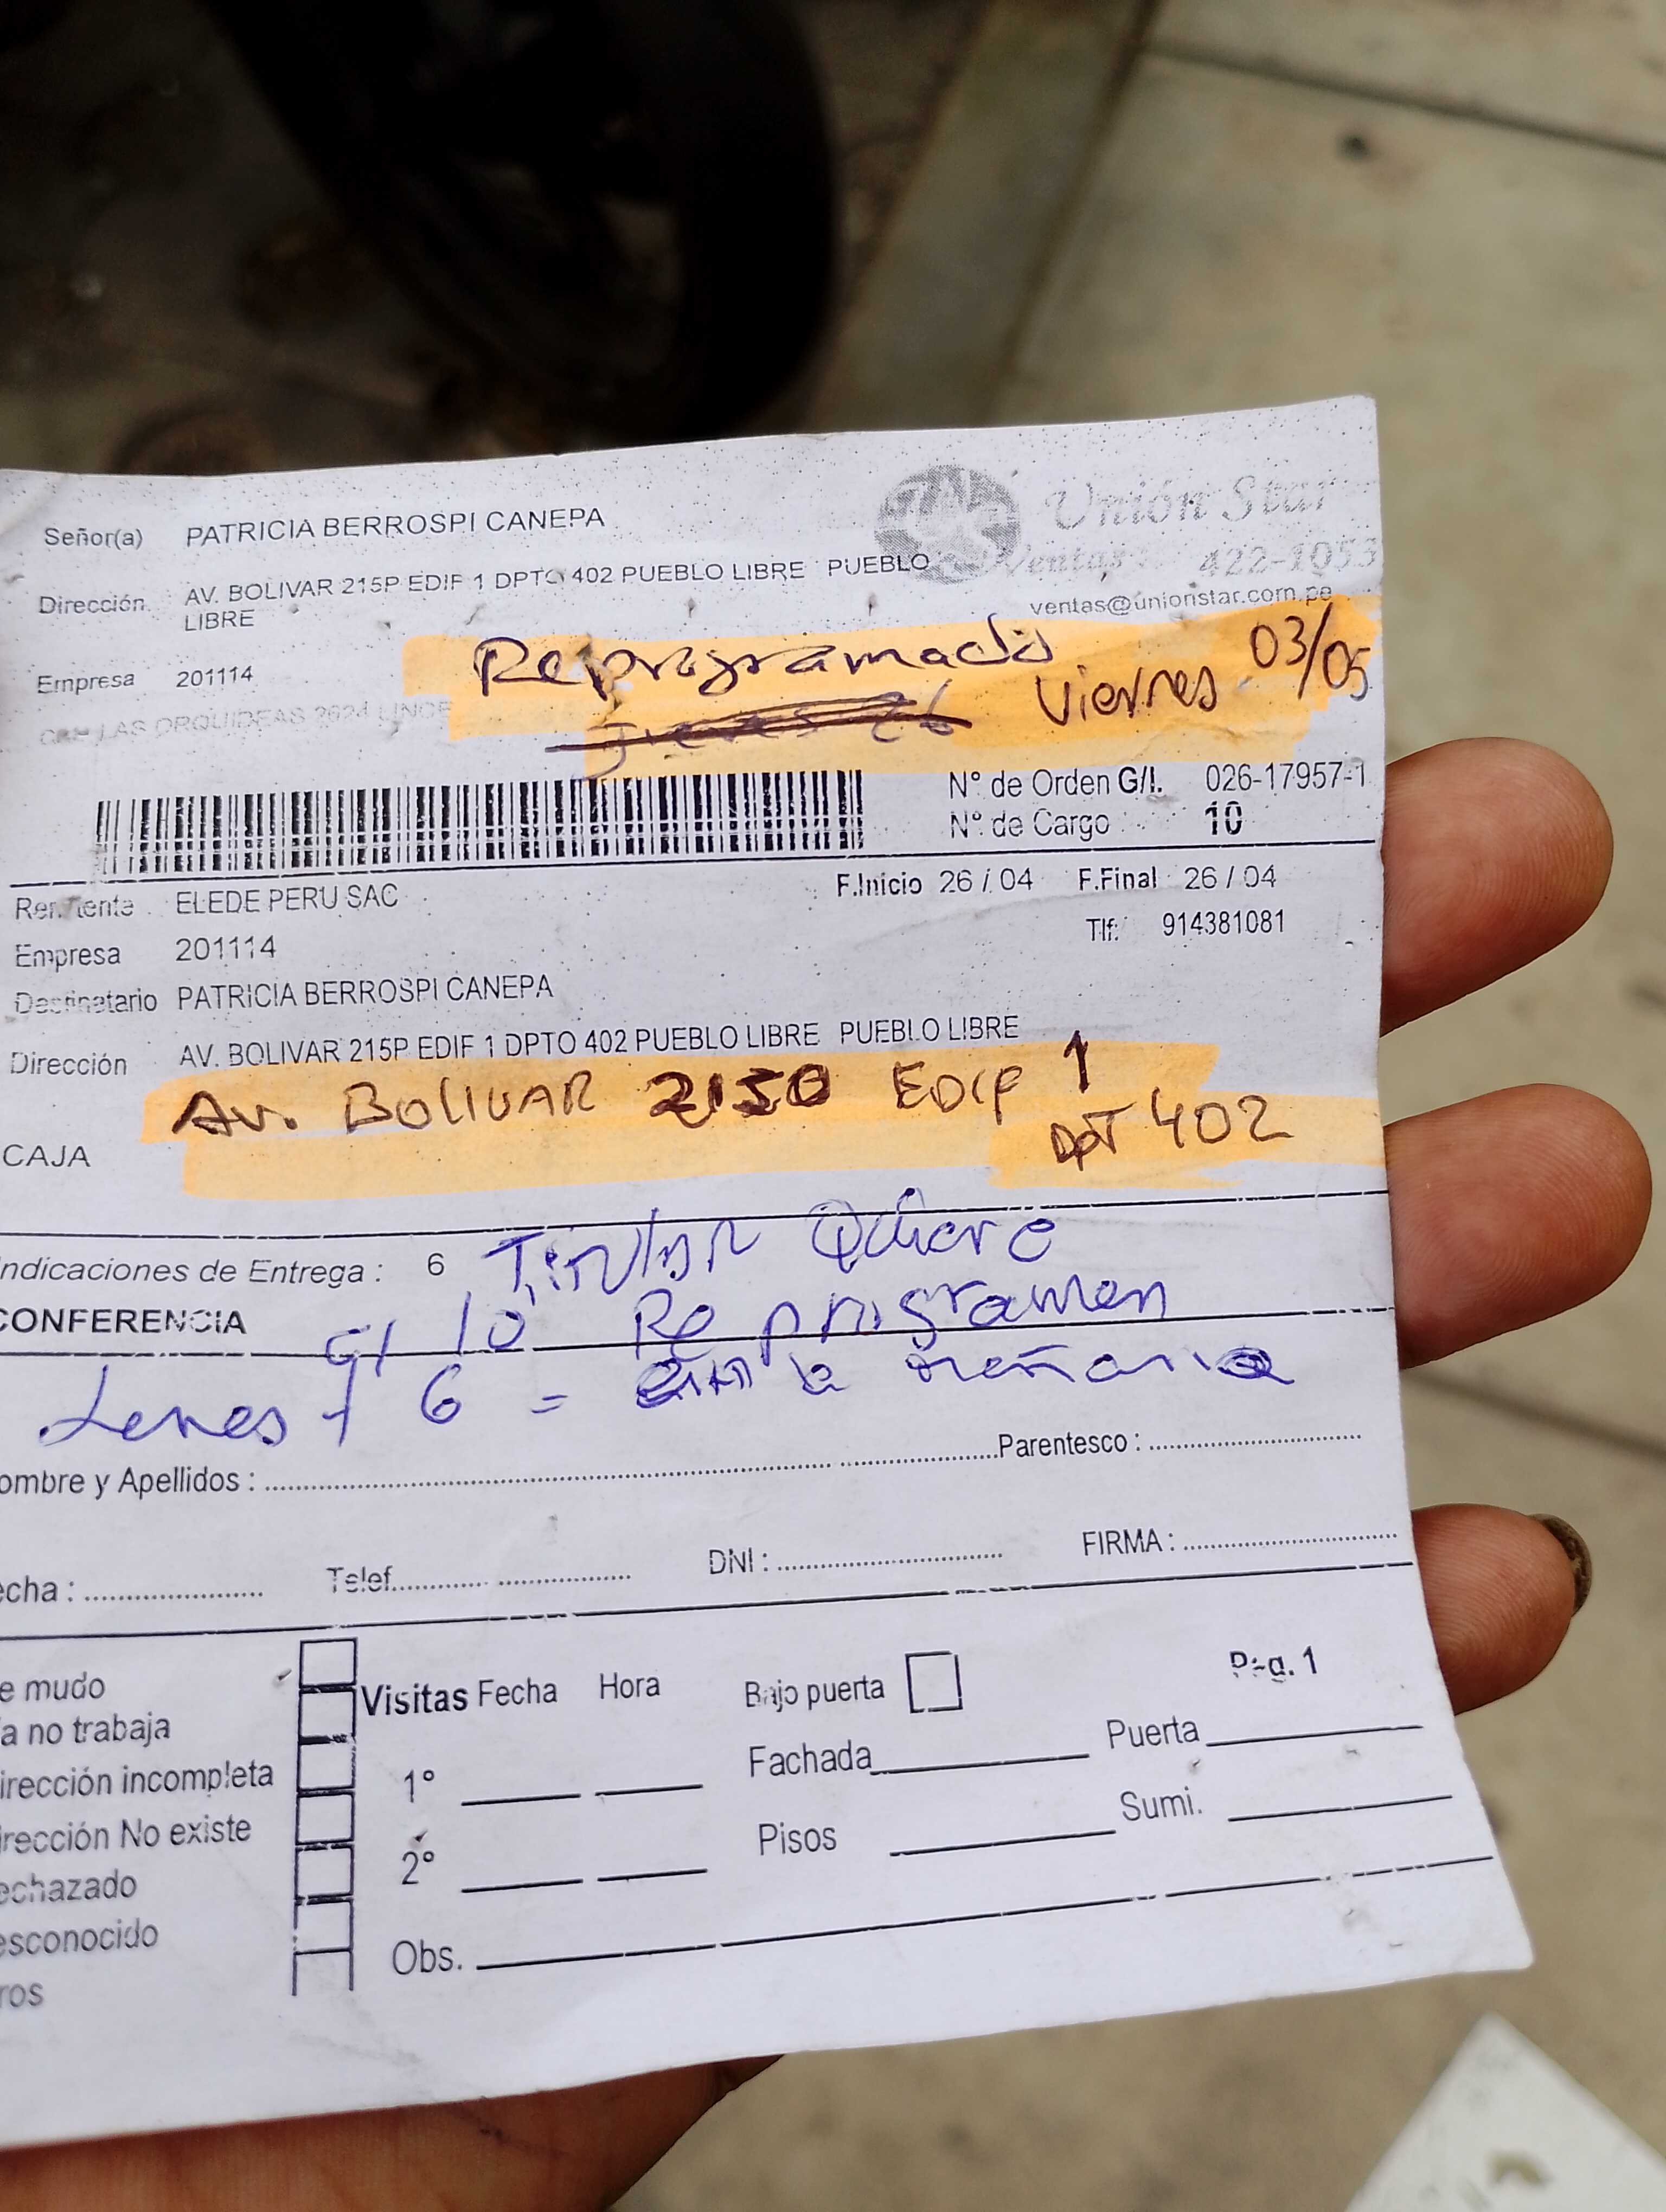 Unión Star
Ventas : 422-1053
ventas@unionstar.com.pe
Señor(a) PATRICIA BERROSPI CANEPA
Dirección AV. BOLIVAR 215P EDIF 1 DPTO 402 PUEBLO LIBRE PUEBLO
LIBRE
Empresa 201114
Reprogramado
Viernes 03/05
LAS ORQUIDEAS 2624 LINCE
N° de Orden G/I. 026-17957-1
N° de Cargo 10
Remitente ELEDE PERU SAC
F.Inicio 26 / 04 F.Final 26 / 04
Empresa 201114
Tlf: 914381081
Destinatario PATRICIA BERROSPI CANEPA
Dirección AV. BOLIVAR 215P EDIF 1 DPTO 402 PUEBLO LIBRE PUEBLO LIBRE
Av. BOLIVAR 2150 EDIF 1
DPT 402
CAJA
ndicaciones de Entrega : 6
Titular Quiere
CONFERENCIA
lo Reprogramen
6 = la mañana
ombre y Apellidos : Parentesco :
echa : Telef. DNI : FIRMA :
e mudo
a no trabaja
irección incompleta
irección No existe
echazado
esconocido
ros
Visitas Fecha Hora
1°
2°
Obs.
Bajo puerta
Pag. 1
Fachada Puerta
Pisos Sumi.